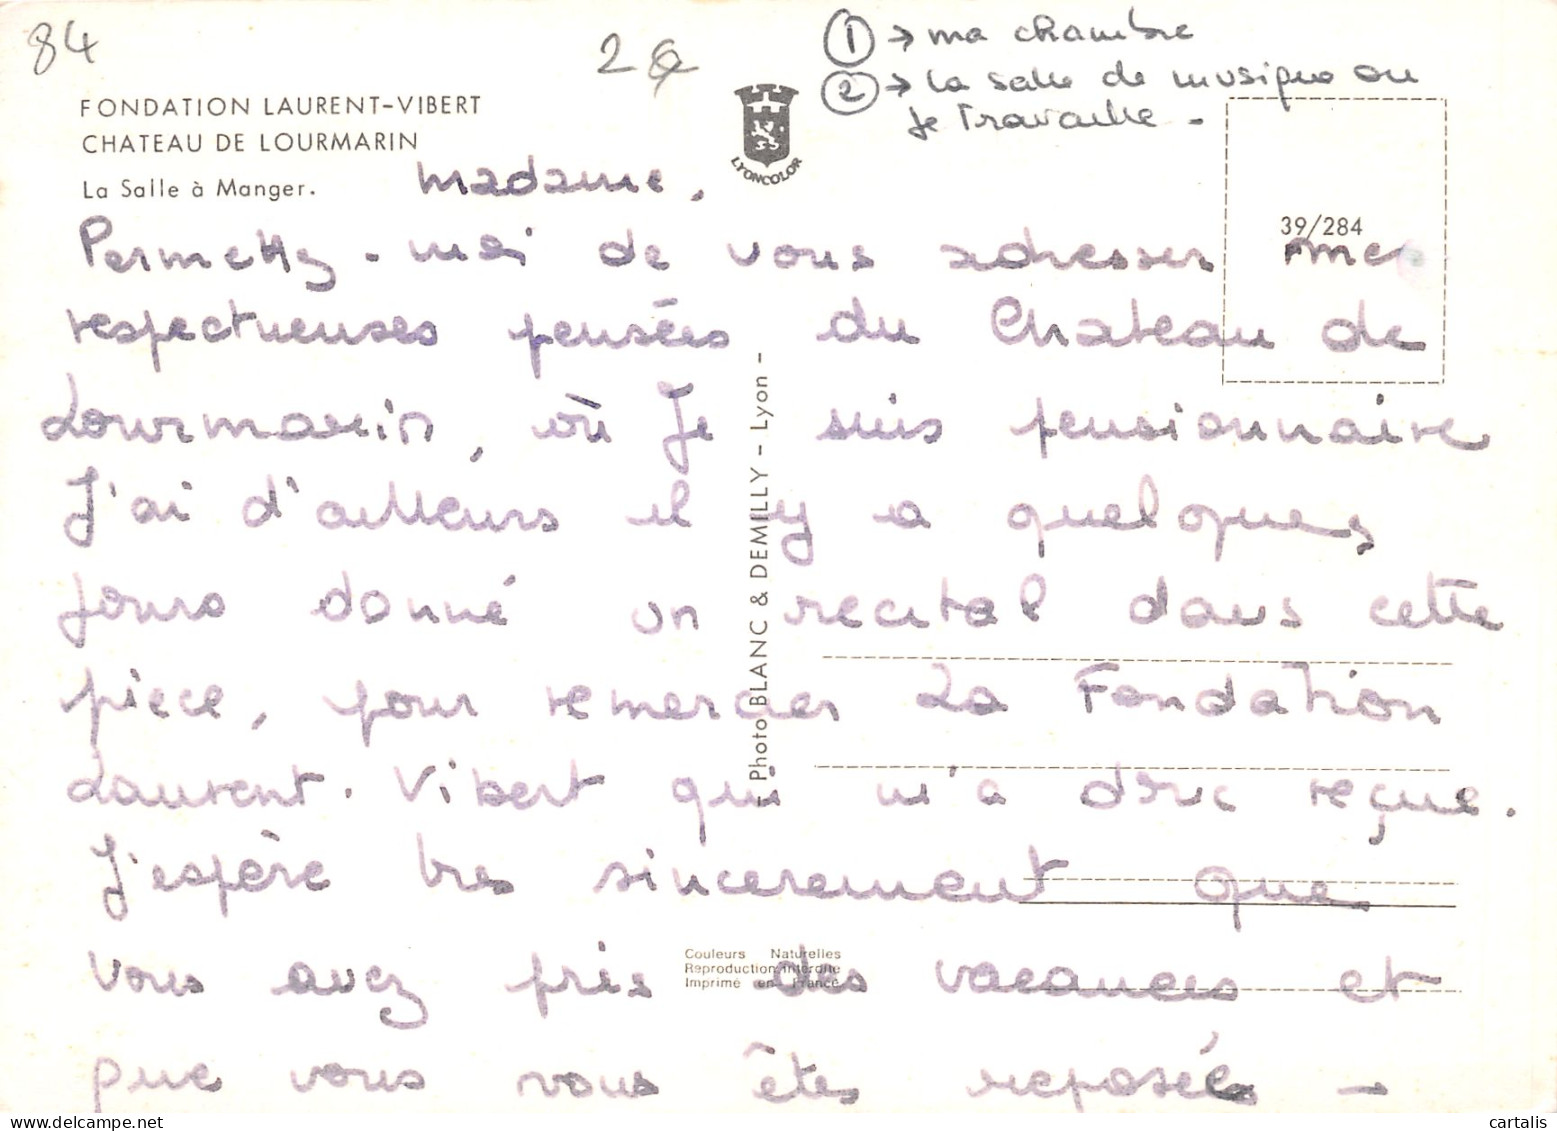 84
2€
① → ma chambre
② → la salle de musique ou
je Travaille -
FONDATION LAURENT-VIBERT
CHATEAU DE LOURMARIN
La Salle à Manger.
LYONCOLOR
39/284
Madame,
Permettez-moi de vous adresser mes
respectueuses pensées du Chateau de
Lourmarin, où Je suis pensionnaire
J'ai d'ailleurs il y a quelques
jours donné un recital dans cette
pièce, pour remercier La Fondation
Laurent-Vibert qui m'a donc reçue.
J'espère tres sincerement que
vous avez pris des vacances et
que vous vous êtes reposée -
Photo BLANC & DEMILLY - Lyon -
Couleurs Naturelles
Reproduction Interdite
Imprimé en France
cartalis